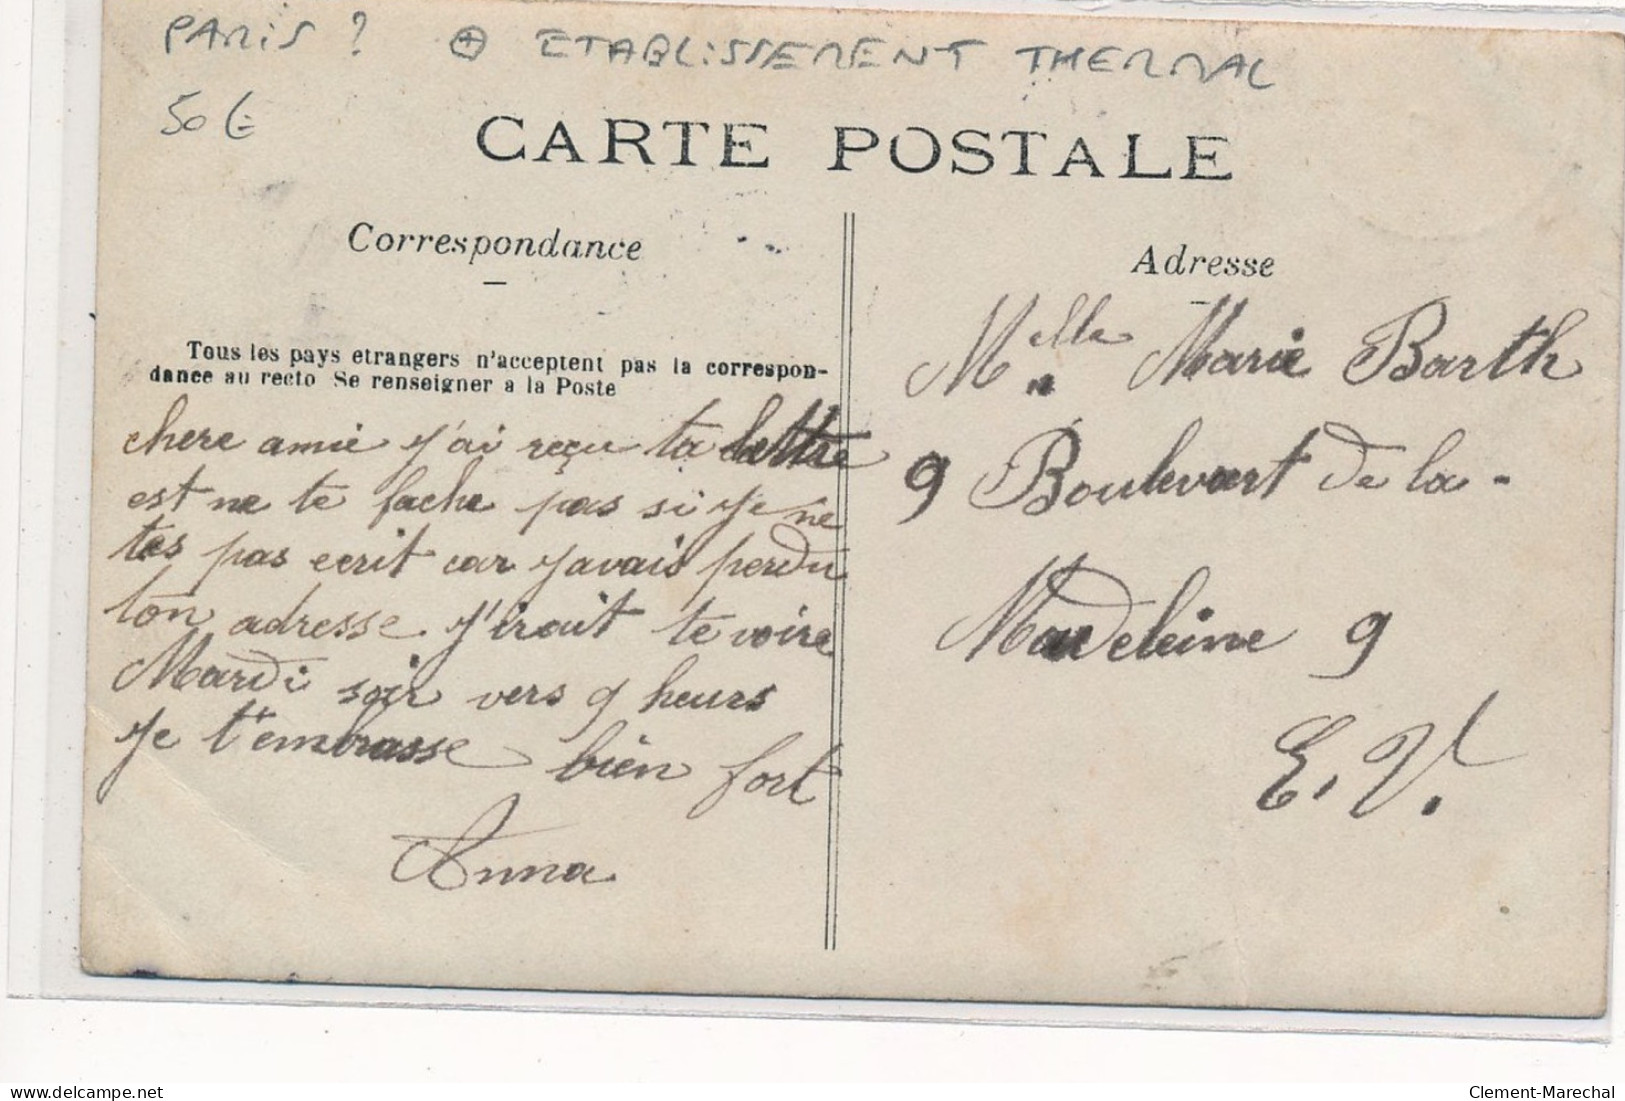 PARIS ? ⊕ ETABLISSEMENT THERMAL
50 €
CARTE POSTALE
Correspondance
Tous les pays etrangers n'acceptent pas la correspon-
dance au recto Se renseigner a la Poste
chere amie j'ai reçu ta lettre
est ne te fache pas si je ne
tes pas ecrit car javais perdu
ton adresse j'irait te voire
Mardi soir vers 9 heurs
je t'embrasse bien fort
Anna
Adresse
Melle Marie Barth
9 Boulevart de la -
Madeleine 9
E. V.
Clement-Marechal
delcampe.net